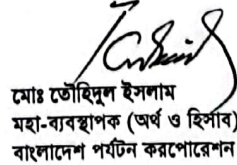 মোঃ তৌহিদুল ইসলাম
মহা-ব্যবস্থাপক (অর্থ ও হিসাব)
বাংলাদেশ পর্যটন করপোরেশন